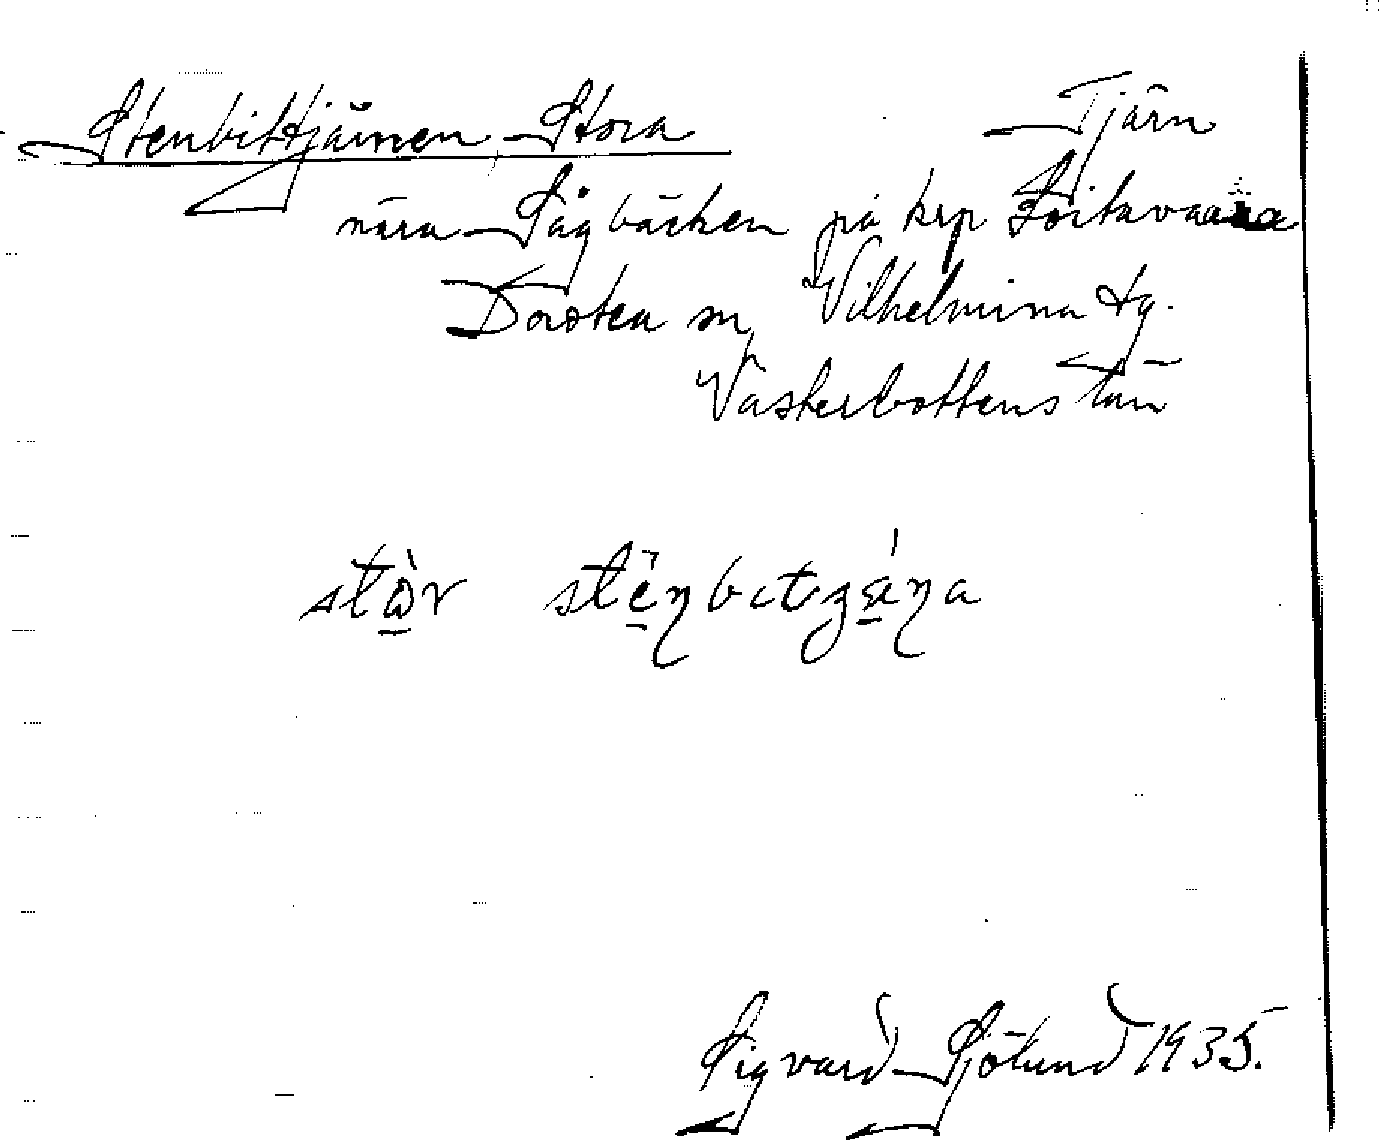 Stenbittjärnen, Stora Tjärn
nära Sågbäcken på krp Soitavaara
Dorotea sn, Vilhelmina tg.
Västerbottens län
stör stenbitzäna
Sigvard Sjölund 1935.